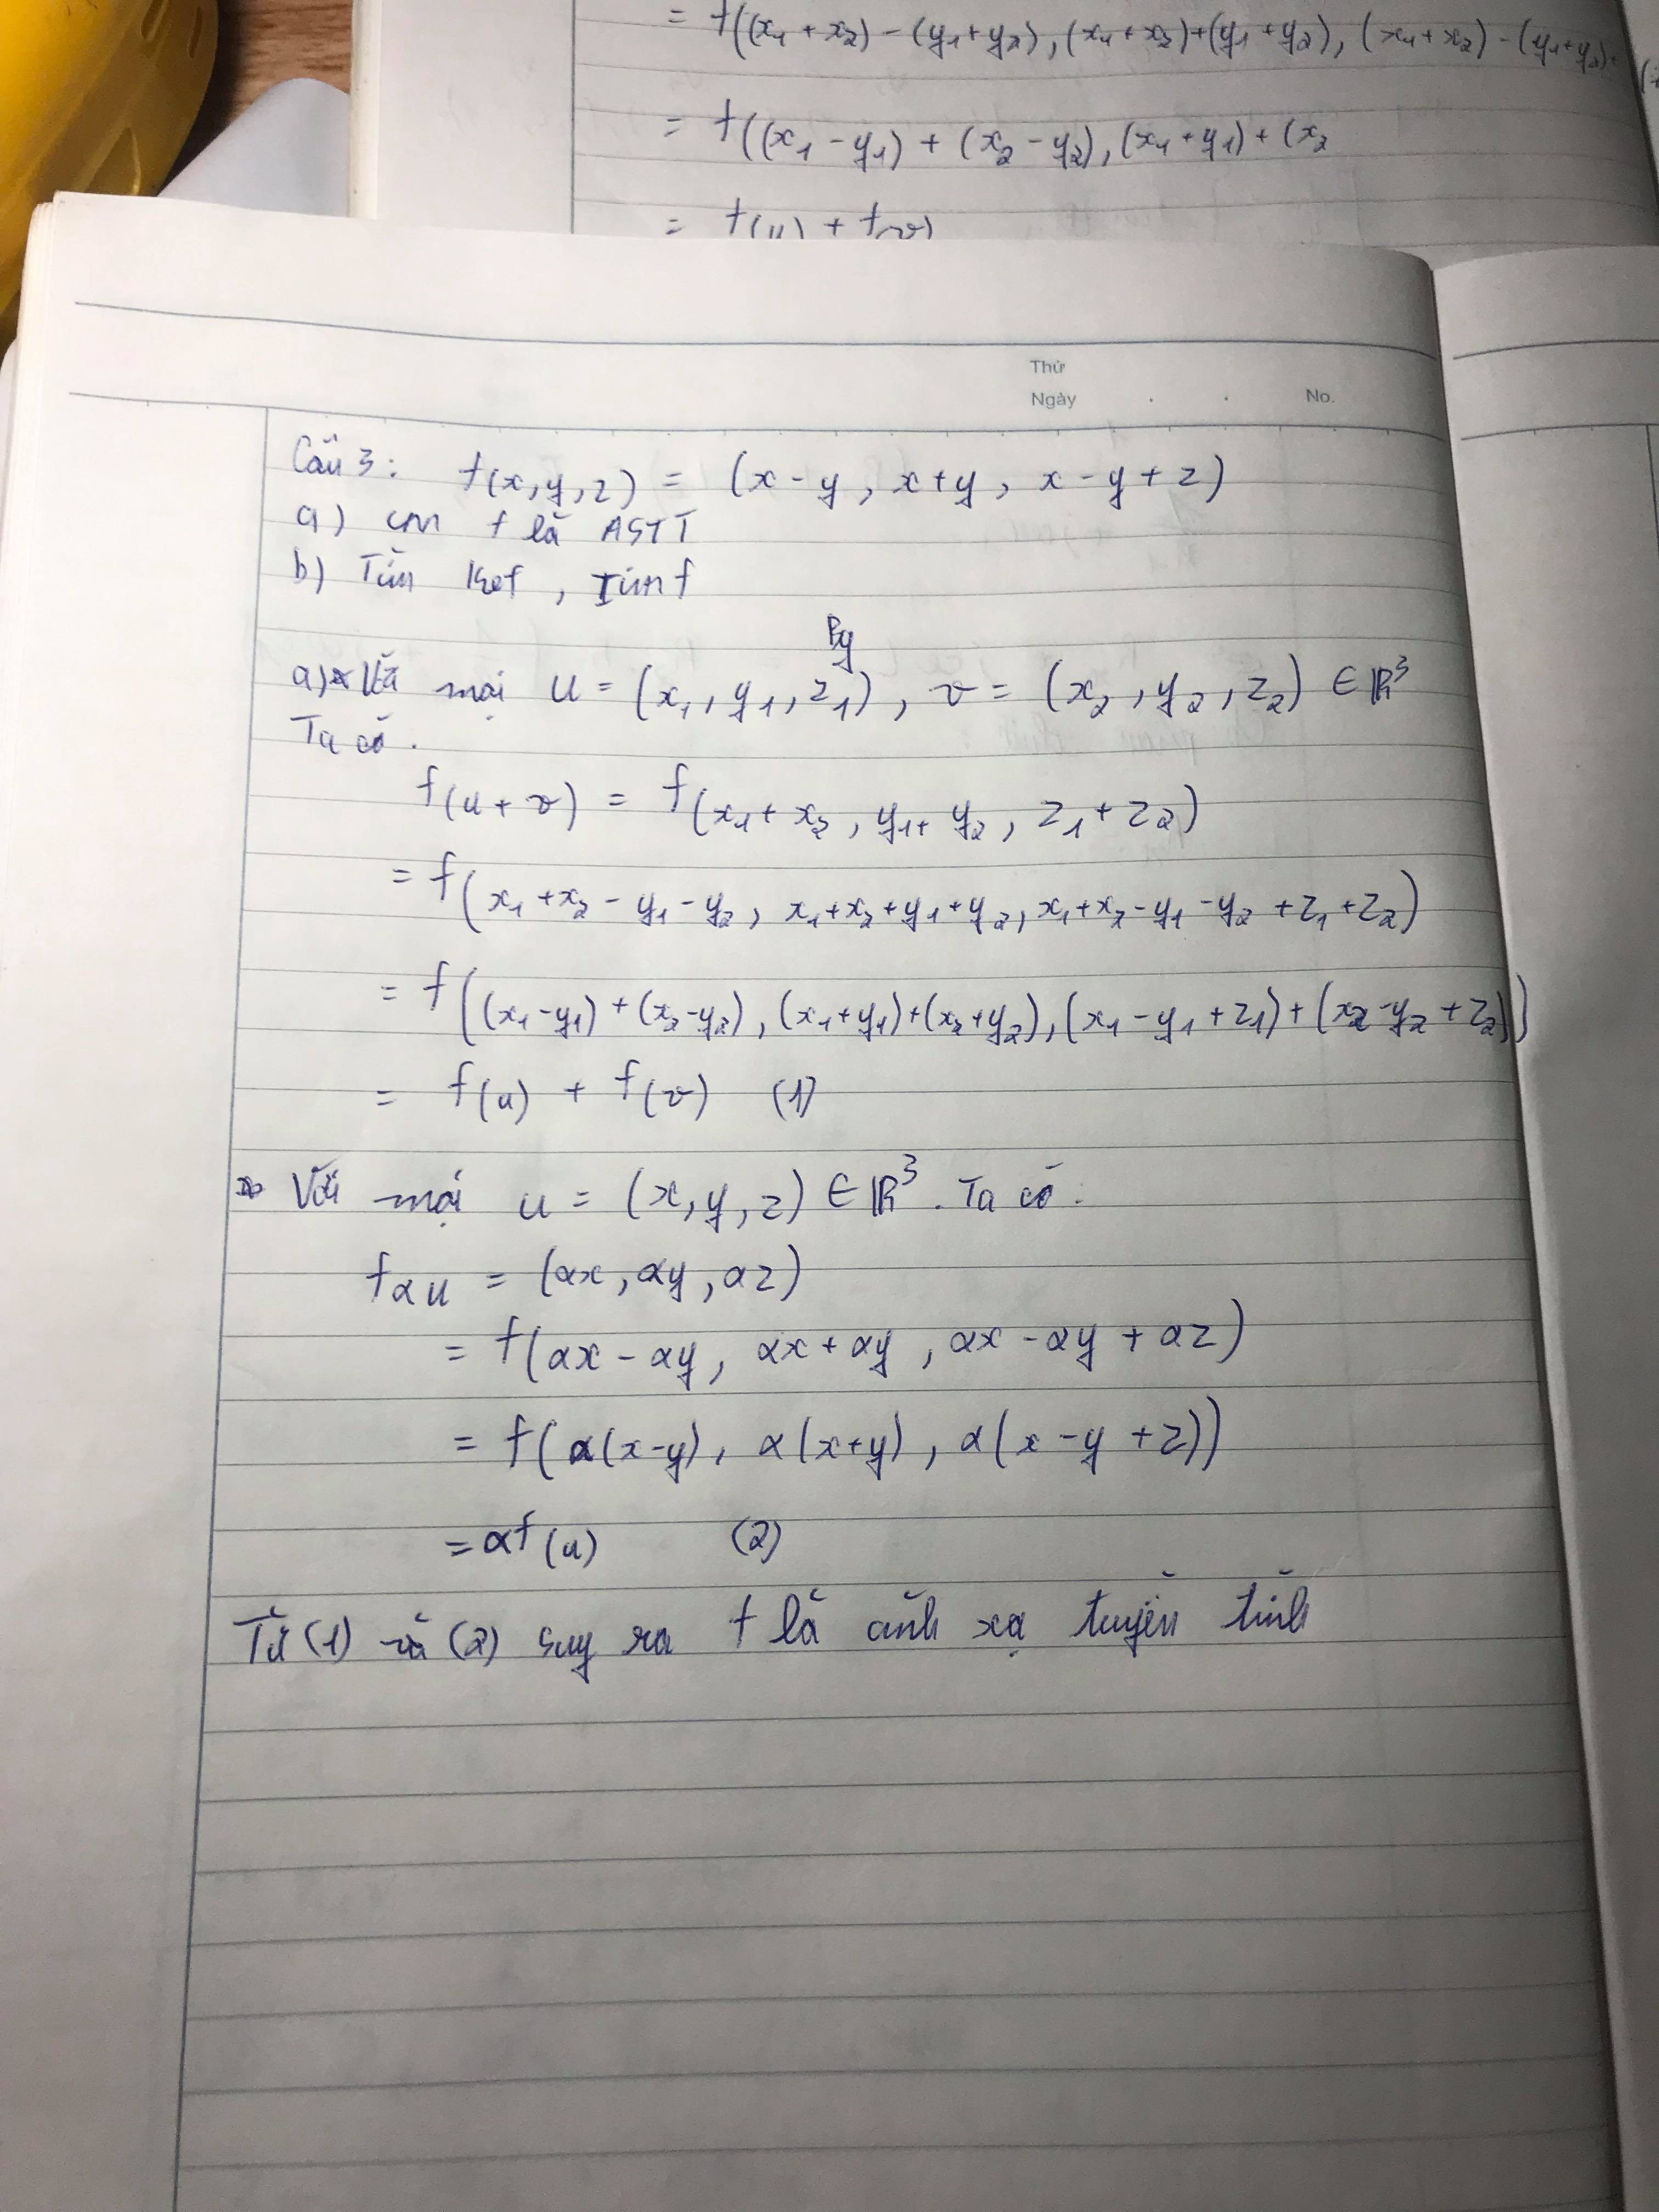 = f((x₁ + x₂) - (y₁ + y₂), (x₁ + x₂) + (y₁ + y₂), (x₁ + x₂) - (y₁ + y₂)
= f((x₁ - y₁) + (x₂ - y₂), (x₁ + y₁) + (x₂
= f(u) + f(v)
Thứ
Ngày . . No.
Câu 3: f(x, y, z) = (x - y, x + y, x - y + z)
a) cm f là ASTT
b) Tìm Kef, Imf
a) Với mọi u = (x₁, y₁, z₁), v = (x₂, y₂, z₂) ∈ R³
Ta có.
f(u + v) = f(x₁ + x₂, y₁ + y₂, z₁ + z₂)
= f(x₁ + x₂ - y₁ - y₂, x₁ + x₂ + y₁ + y₂, x₁ + x₂ - y₁ - y₂ + z₁ + z₂)
= f((x₁ - y₁) + (x₂ - y₂), (x₁ + y₁) + (x₂ + y₂), (x₁ - y₁ + z₁) + (x₂ - y₂ + z₂))
= f(u) + f(v) (1)
Với mọi u = (x, y, z) ∈ R³. Ta có:
fαu = (αx, αy, αz)
= f(αx - αy, αx + αy, αx - αy + αz)
= f(α(x - y), α(x + y), α(x - y + z))
= αf(u) (2)
Từ (1) và (2) suy ra f là ánh xạ tuyến tính